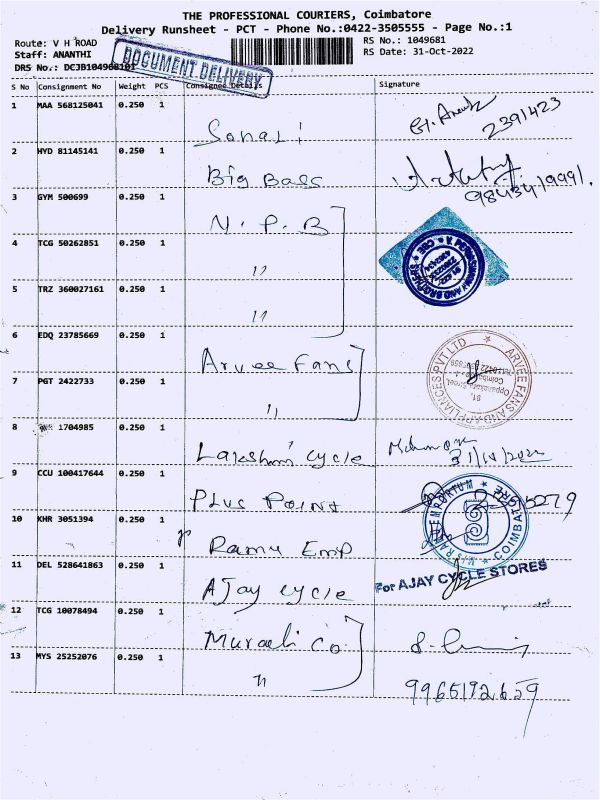 THE PROFESSIONAL COURIERS, Coimbatore
Delivery Runsheet - PCT - Phone No.:0422-3505555 - Page No.:1
Route: V H ROAD
RS No.: 1049681
Staff: ANANTHI
RS Date: 31-Oct-2022
DRS No.: DCJB104968101
DOCUMENT DELIVERY
S No Consignment No Weight PCS Consignee Details Signature
1 MAA 568125041 0.250 1 Sonali 2391423
2 HYD 81145141 0.250 1 Big Bass
3 GYM 500699 0.250 1 N. P. B
4 TCG 50262851 0.250 1 "
5 TRZ 360027161 0.250 1 "
6 EDQ 23785669 0.250 1 Arvee Fans
ARVEE FANS AND APPLIANCES PVT LTD
91, Oppanakara Street,
7 PGT 2422733 0.250 1 "
8 1704985 0.250 1 Lakshmi cycle 31/10/2022
9 CCU 100417644 0.250 1 Plus Point
EMPORIUM COIMBATORE
10 KHR 3051394 0.250 1 Ramu Emp
11 DEL 528641863 0.250 1 Ajay cycle
For AJAY CYCLE STORES
12 TCG 10078494 0.250 1 Murali Co.
13 MYS 25252076 0.250 1 "
9965192659